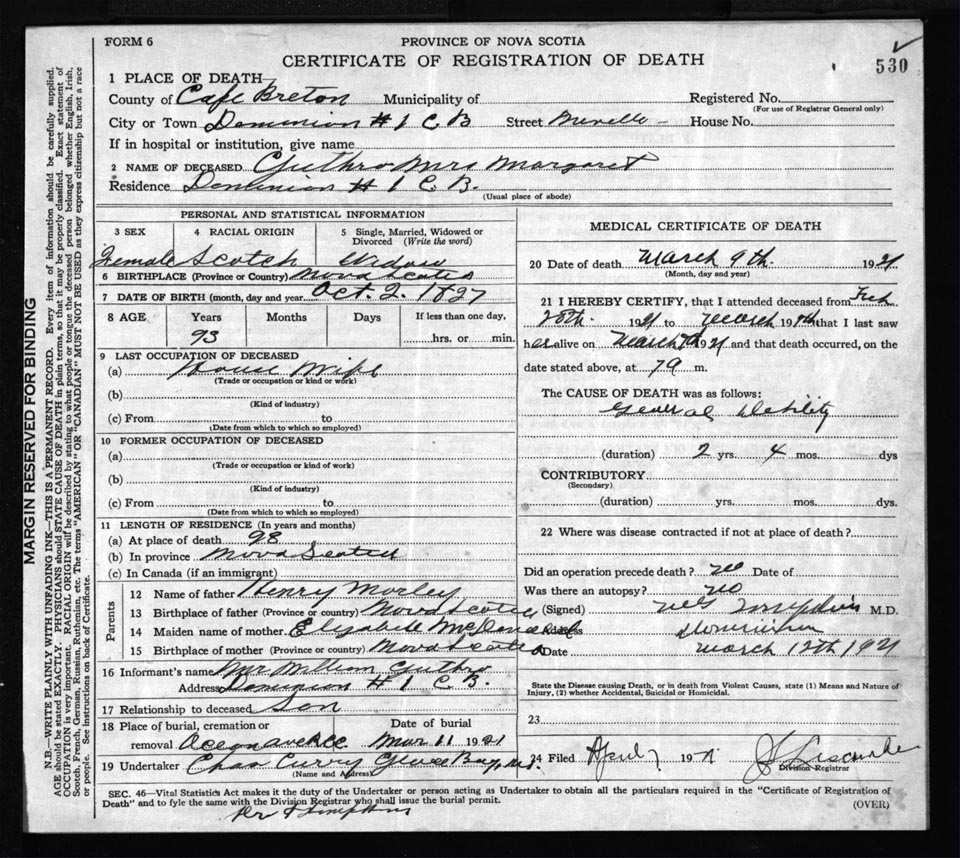 FORM 6
PROVINCE OF NOVA SCOTIA
CERTIFICATE OF REGISTRATION OF DEATH
530
1 PLACE OF DEATH
County of Cape Breton Municipality of Registered No.
(For use of Registrar General only)
City or Town Dominion # 1 C B Street House No.
If in hospital or institution, give name
2 NAME OF DECEASED Guthro Mrs Margaret
Residence Dominion # 1 C. B.
(Usual place of abode)
PERSONAL AND STATISTICAL INFORMATION
3 SEX 4 RACIAL ORIGIN 5 Single, Married, Widowed or Divorced (Write the word)
Female Scotch Widow
6 BIRTHPLACE (Province or Country) Nova Scotia
7 DATE OF BIRTH (month, day and year) Oct. 2. 1827
8 AGE Years Months Days If less than one day,
93 hrs. or min.
9 LAST OCCUPATION OF DECEASED
(a) House Wife
(Trade or occupation or kind or work)
(b)
(Kind of industry)
(c) From to
(Date from which to which so employed)
10 FORMER OCCUPATION OF DECEASED
(a)
(Trade or occupation or kind of work)
(b)
(Kind of industry)
(c) From to
(Date from which to which so employed)
11 LENGTH OF RESIDENCE (In years and months)
(a) At place of death
(b) In province Nova Scotia
(c) In Canada (if an immigrant)
Parents
12 Name of father Henry Morley
13 Birthplace of father (Province or country) Nova Scotia
14 Maiden name of mother Elizabeth
15 Birthplace of mother (Province or country) Nova Scotia
16 Informant's name Mr William Guthro
Address Dominion # 1 C. B.
17 Relationship to deceased Son
18 Place of burial, cremation or Date of burial
removal Mar 11 1921
19 Undertaker Chas Curry Glace Bay, N.S.
(Name and Address)
MEDICAL CERTIFICATE OF DEATH
20 Date of death March 9th. 1921
(Month, day and year)
21 I HEREBY CERTIFY, that I attended deceased from
1921 to March 19 that I last saw
her alive on March 1921 and that death occurred, on the
date stated above, at m.
The CAUSE OF DEATH was as follows:
General Debility
(duration) 2 yrs. 4 mos. dys
CONTRIBUTORY
(Secondary)
(duration) yrs. mos. dys.
22 Where was disease contracted if not at place of death?
Did an operation precede death? no Date of
Was there an autopsy? no
(Signed) M.D.
Address Dominion
Date March 12th 1921
State the Disease causing Death, or in death from Violent Causes, state (1) Means and Nature of
Injury, (2) whether Accidental, Suicidal or Homicidal.
23
24 Filed April 7 1921
Division Registrar
SEC. 46—Vital Statistics Act makes it the duty of the Undertaker or person acting as Undertaker to obtain all the particulars required in the "Certificate of Registration of
Death" and to fyle the same with the Division Registrar who shall issue the burial permit. (OVER)
MARGIN RESERVED FOR BINDING
N.B.—WRITE PLAINLY WITH UNFADING INK—THIS IS A PERMANENT RECORD. Every item of information should be carefully supplied.
AGE should be stated EXACTLY. PHYSICIANS should STATE CAUSE OF DEATH in plain terms, so that it may be properly classified. Exact statement of
OCCUPATION is very important. RACIAL ORIGIN will be described by stating to what people or tongue the deceased person belonged whether English, Irish,
Scotch, French, German, Russian, Ruthenian, etc. The terms "AMERICAN" OR "CANADIAN" MUST NOT BE USED as they express citizenship but not a race
or people. See instructions on back of Certificate.